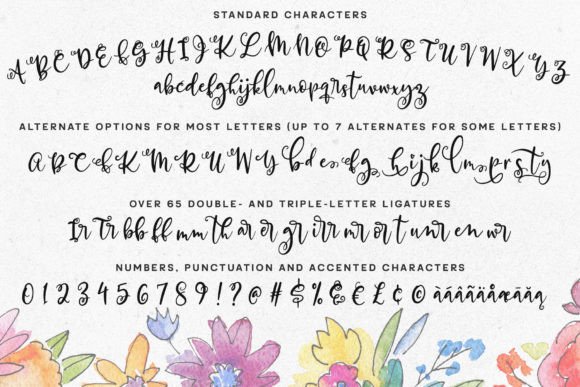 STANDARD CHARACTERS
A B C D E F G H I J K L M N O P Q R S T U V W X Y Z
abcdefghijklmnopqrstuvwxyz
ALTERNATE OPTIONS FOR MOST LETTERS (UP TO 7 ALTERNATES FOR SOME LETTERS)
A B C F K M R U W Y b d e f g h i j k l m p r s t y
OVER 65 DOUBLE- AND TRIPLE-LETTER LIGATURES
Ir Tr bb ff mm th ar er gr irr nr or t un rr en wr
NUMBERS, PUNCTUATION AND ACCENTED CHARACTERS
0 1 2 3 4 5 6 7 8 9 ! ? @ # $ % & € £ ¢ © àáâãäåæāăą